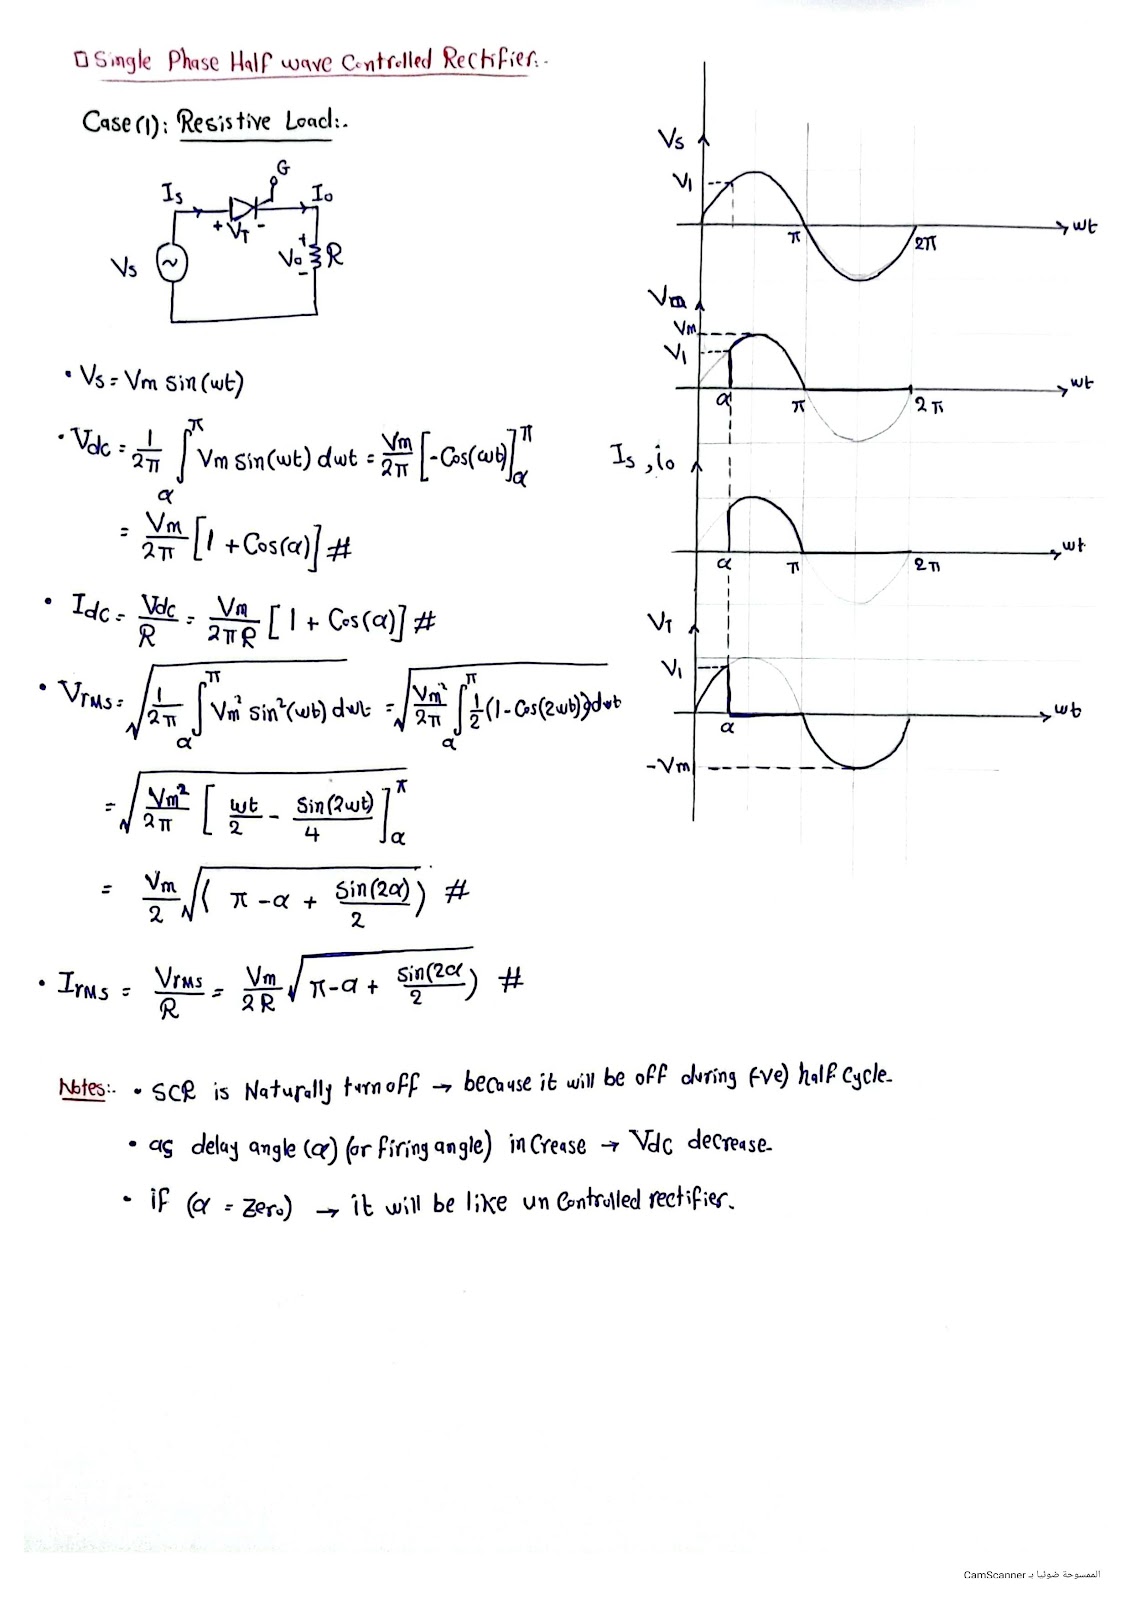 □ Single Phase Half wave Controlled Rectifier:-
Case(1): Resistive Load:-
G
Is
Io
+ VT -
Vs
~
+
Vo
-
R
• Vs = Vm Sin(wt)
• Vdc = 1/2π ∫_α^π Vm Sin(wt) dwt = Vm/2π [-Cos(wt)]_α^π
= Vm/2π [1 + Cos(α)] #
• Idc = Vdc/R = Vm/2πR [1 + Cos(α)] #
• Vrms = √(1/2π ∫_α^π Vm² Sin²(wt) dwt) = √(Vm²/2π ∫_α^π 1/2 (1-Cos(2wt)) dwt
= √(Vm²/2π [wt/2 - Sin(2wt)/4]_α^π
= Vm/2 √(π-α + Sin(2α)/2) #
• Irms = Vrms/R = Vm/2R √(π-α + Sin(2α)/2) #
Vs
V1
π
2π
wt
Vm
V1
α
π
2π
wt
Is, io
α
π
2π
wt
VT
V1
α
wt
-Vm
Notes:- • SCR is Naturally turn off → because it will be off during (-ve) half Cycle.
• as delay angle (α) (or firing angle) increase → Vdc decrease.
• if (α = Zero) → it will be like un Controlled rectifier.
الممسوحة ضوئيا بـ CamScanner